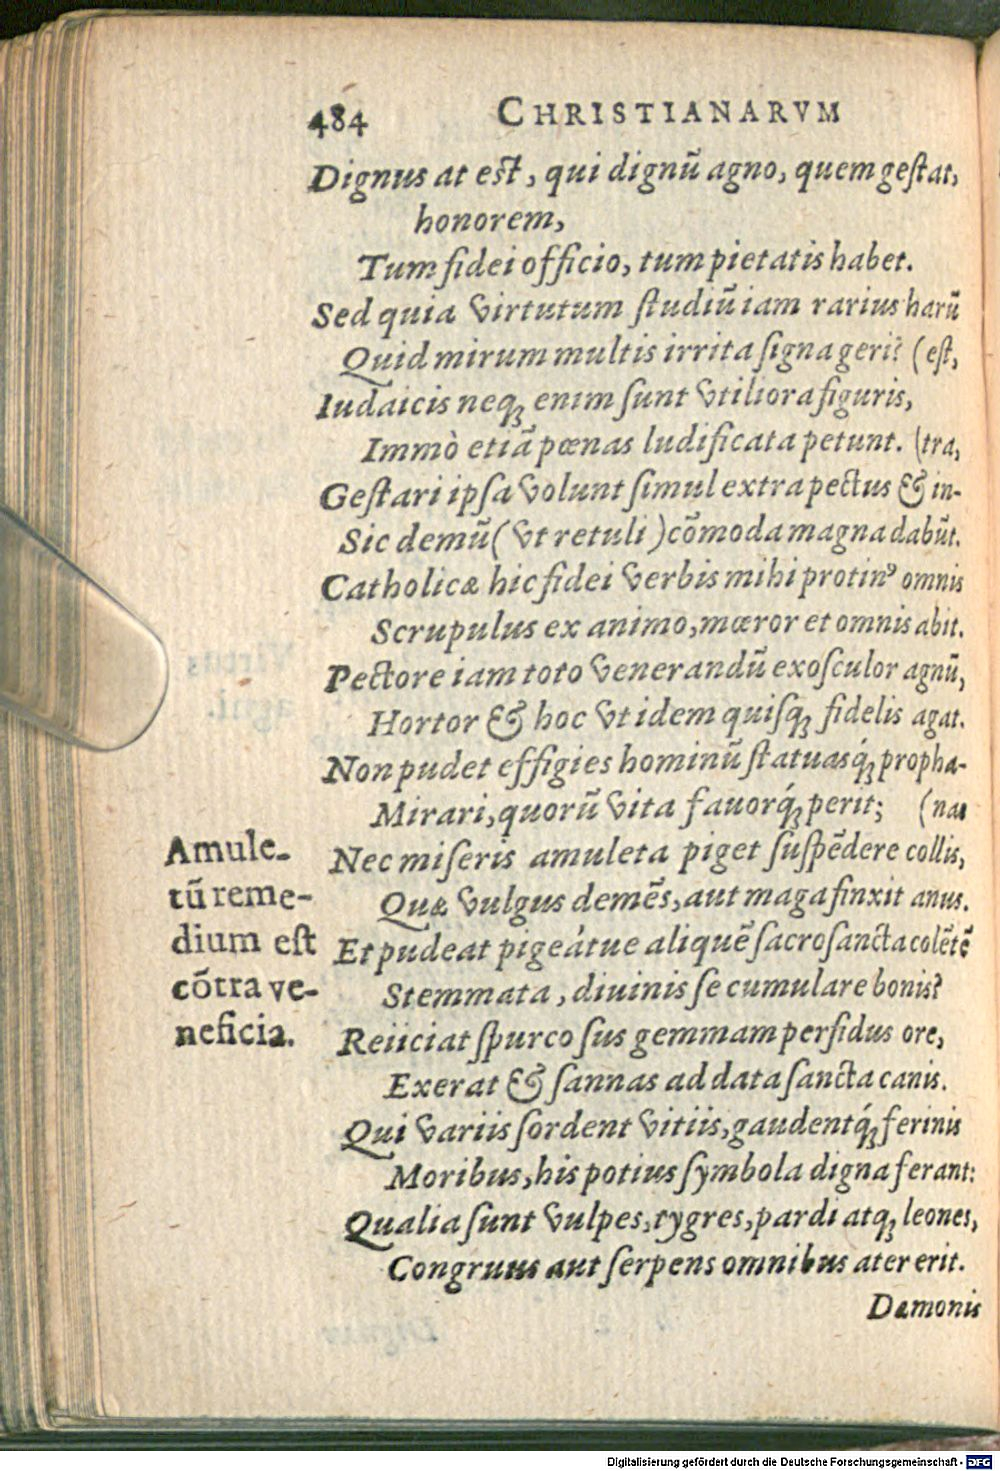 484 CHRISTIANARVM
Dignus at est, qui dignũ agno, quem gestat,
honorem,
Tum fidei officio, tum pietatis habet.
Sed quia virtutum studiũ iam rarius harũ
Quid mirum multis irrita signa geri? (est,
Iudaicis neqꝫ enim sunt vtiliora figuris,
Immò etiã pœnas ludificata petunt. (tra,
Gestari ipsa volunt simul extra pectus & in-
Sic demũ (vt retuli) cõmoda magna dabũt.
Catholicæ hic fidei verbis mihi protinꝰ omnis
Scrupulus ex animo, mœror et omnis abit.
Pectore iam toto venerandũ exosculor agnũ,
Hortor & hoc vt idem quisqꝫ fidelis agat.
Non pudet effigies hominũ statuasq́ꝫ propha-
Mirari, quorũ vita fauorq́ꝫ perit; (nas
Nec miseris amuleta piget suspẽdere collis,
Quæ vulgus demẽs, aut maga finxit anus.
Et pudeat pigeátue aliquẽ sacrosancta colẽtẽ
Stemmata, diuinis se cumulare bonis?
Reiiciat spurco sus gemmam perfidus ore,
Exerat & sannas ad data sancta canis.
Qui variis sordent vitiis, gaudentq́ꝫ ferinis
Moribus, his potius symbola digna ferant:
Qualia sunt vulpes, tygres, pardi atqꝫ leones,
Congruus aut serpens omnibus ater erit.
Dæmonis
Amule-
tũ reme-
dium est
cõtra ve-
neficia.
Digitalisierung gefördert durch die Deutsche Forschungsgemeinschaft - DFG